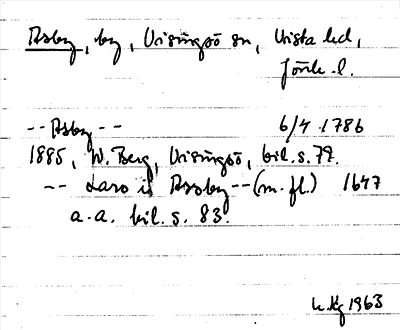 Åsby, by, Visingsö sn, Vista hd,
Jönk. l.
-- Asby -- 6/4 1786
1885, W. Berg, Visingsö, bil. s. 79.
-- Lars i Assby -- (m. fl.) 1647
a. a. bil. s. 83.
1963